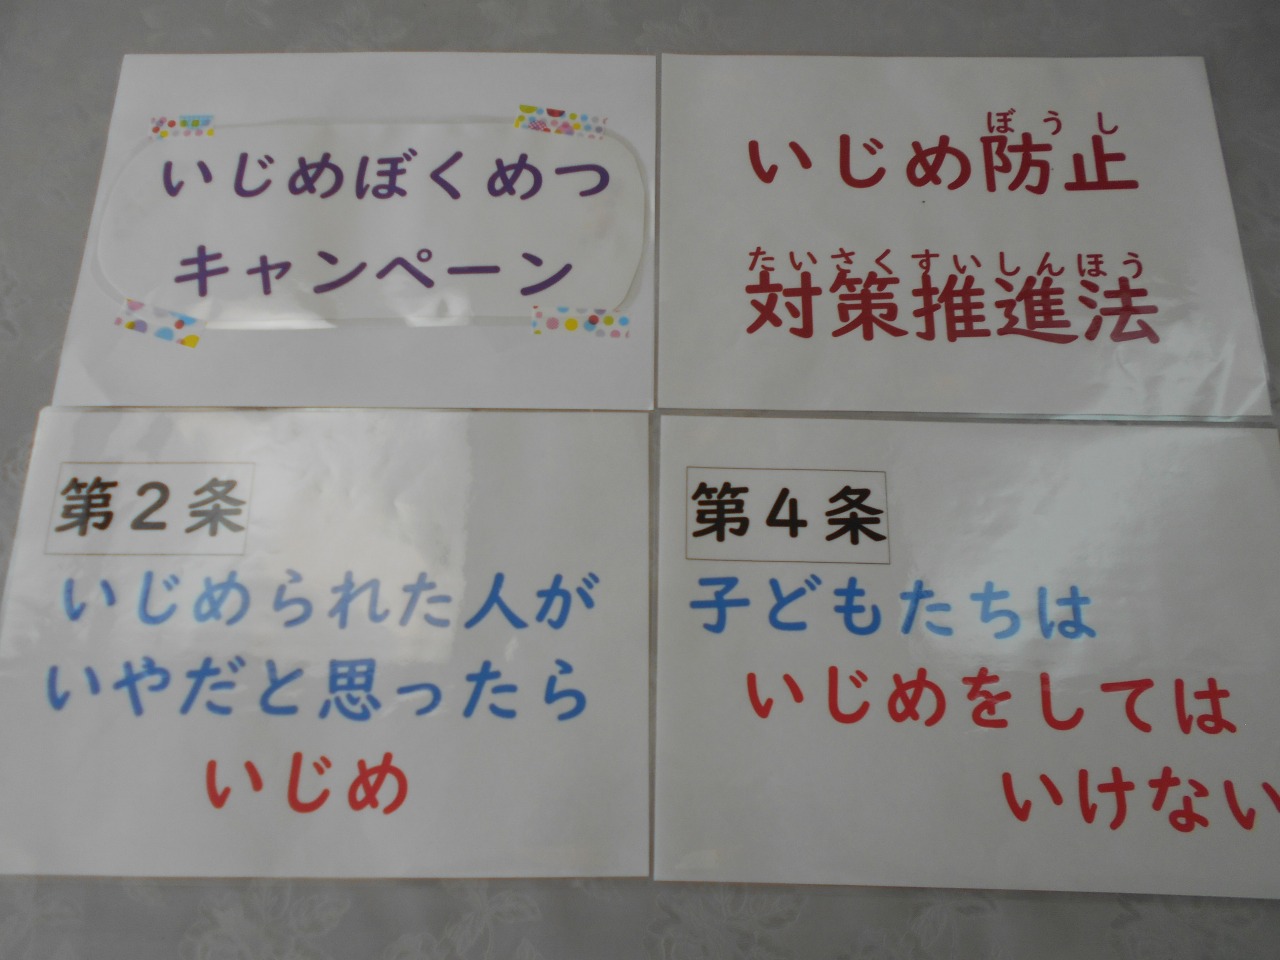 いじめぼくめつ
キャンペーン
ぼうし
いじめ防止
たいさくすいしんほう
対策推進法
第２条
いじめられた人が
いやだと思ったら
いじめ
第４条
子どもたちは
いじめをしては
いけない